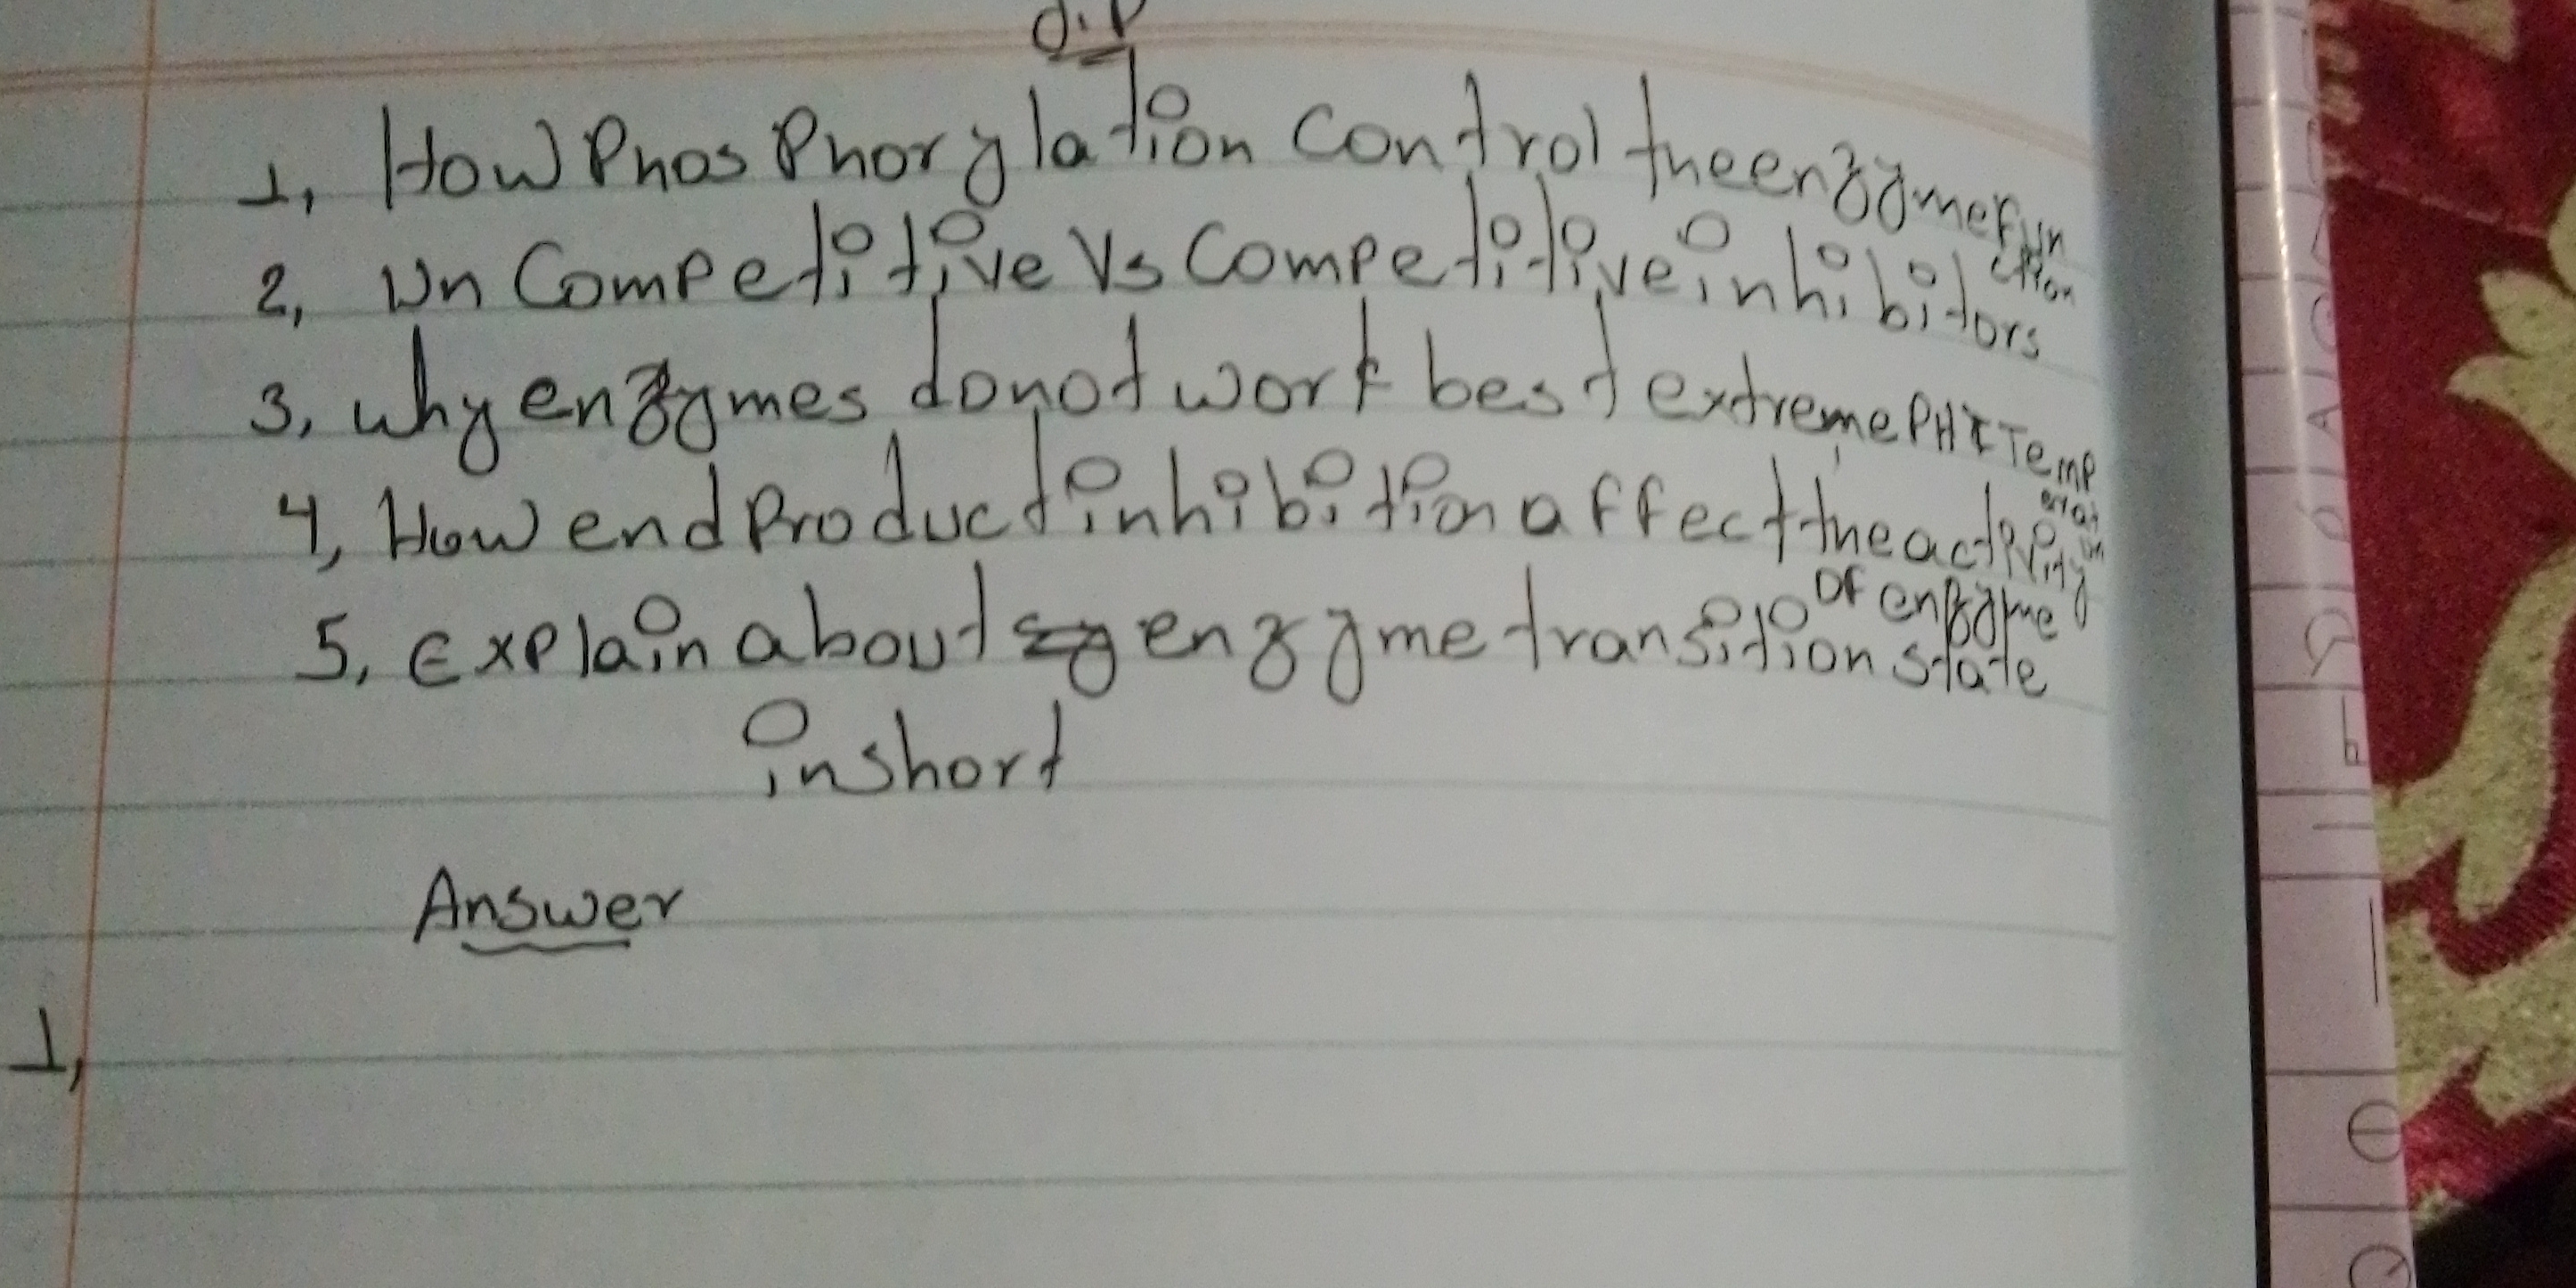 1, How Phosphorylation control the enzyme function
2, Un Competitive Vs Competitive inhibitors
3, why enzymes do not work best extreme PH & Temp
4, How end Product inhibition affect the activity of enzyme
5, Explain about enzyme transition state
in short
Answer
1,